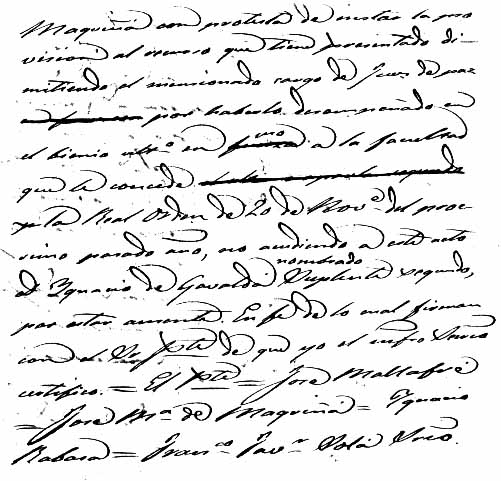 Maquiña con protesta de estar la pro
vision al recurso que tiene presentado di-
mitiendo el mencionado cargo de Juez de paz
por haberlo desempeñado en
el bienio ult.º en uso a la facultad
que le concede
p.r la Real Orden de 20 de Nov.e del proc-
simo pasado año, no acudiendo a este acto
D. Ygnacio de Gavaldá nombrado Suplente segundo,
por estar ausente. En fe de lo cual firman
con el Sr Pte de que yo el infro Srio
certifico. = El Pte = José Mallafré
= José M.a de Maquiña = Ygnacio
Rabasa = Fran.co Jav.r Solá Srio.